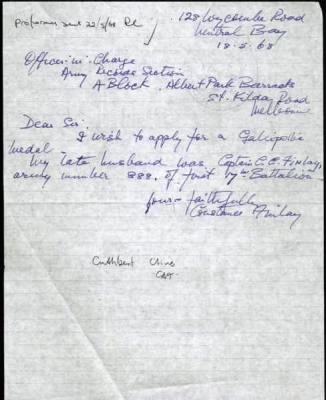 Proforma sent 22/5/68
128 Wycombe Road
Neutral Bay
18.5.68
Officer-in-Charge
Army Records Section
A Block, Albert Park Barracks
St. Kilda Road
Melbourne
Dear Sir:
I wish to apply for a Gallipolis
medal.
My late husband was Captain C.C. Finlay,
army number 888, of first 17th Battalion
yours faithfully
Constance Finlay
Cuthbert Clive
CAPT.